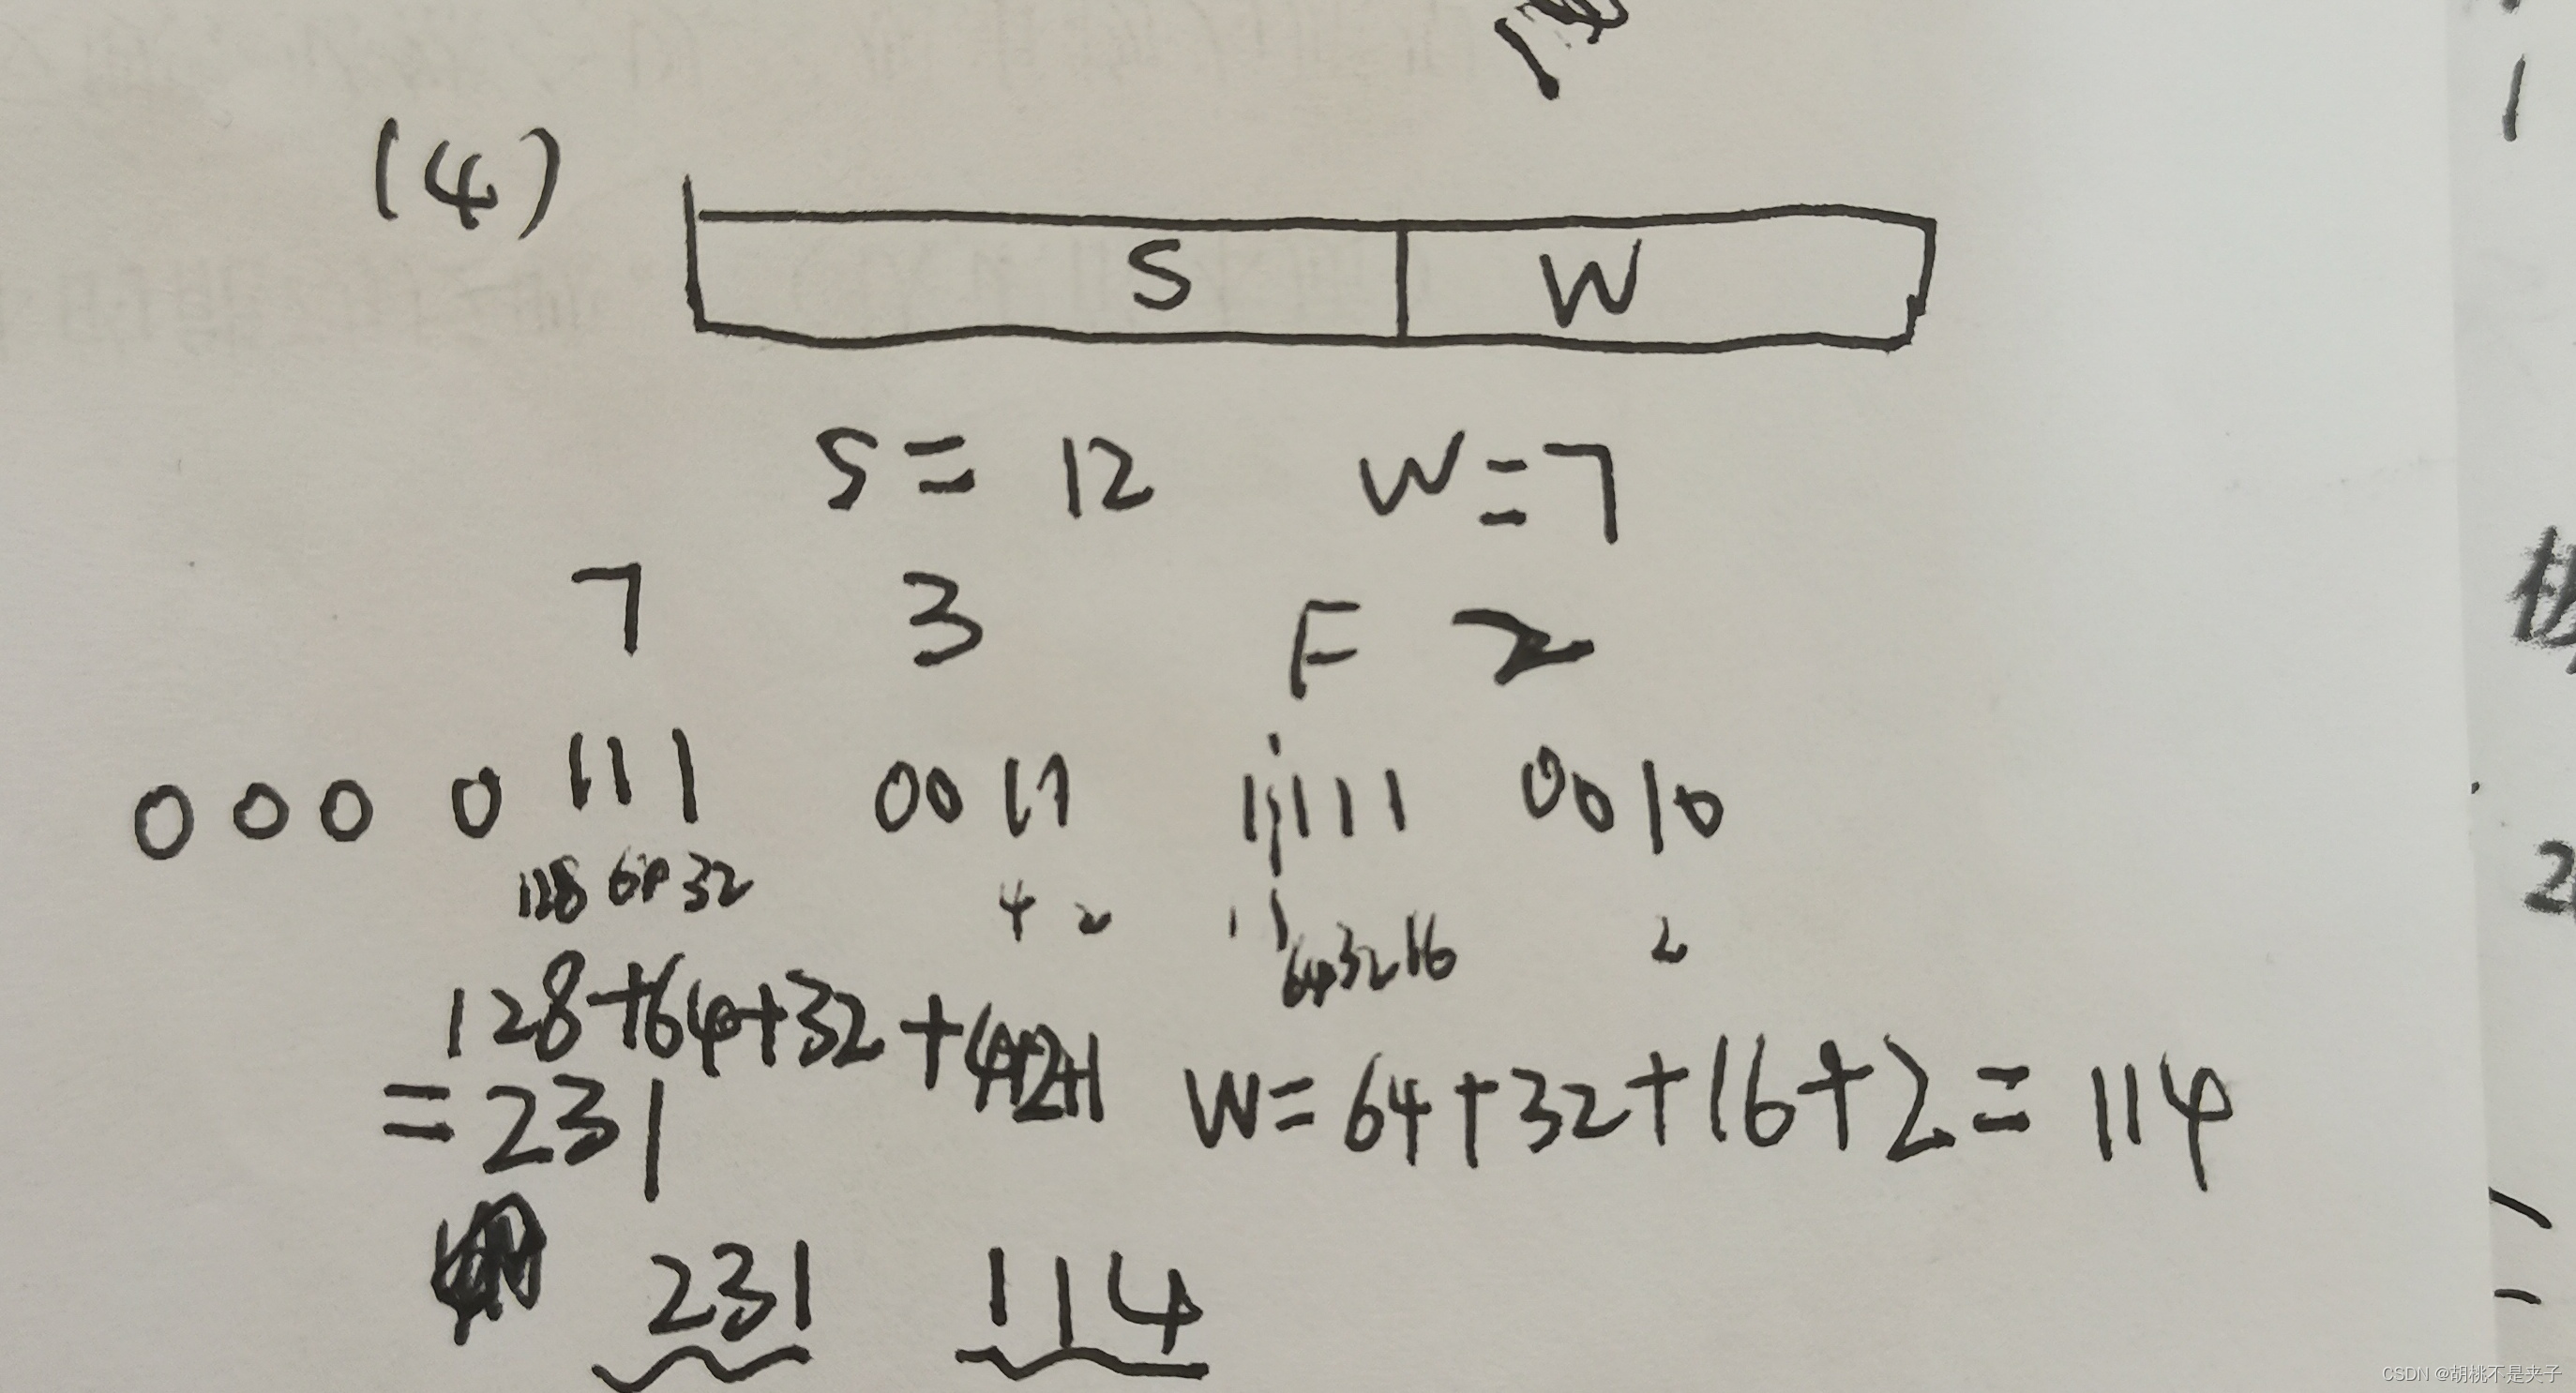 (4)
S W
S = 12 W = 7
7 3 F 2
0 0 0 0 111 0011 1111 0010
128 64 32 4 2 1 64 32 16 2
128+64+32+4+2+1
=231 W=64+32+16+2=114
231 114
1
2
CSDN @胡桃不是夹子